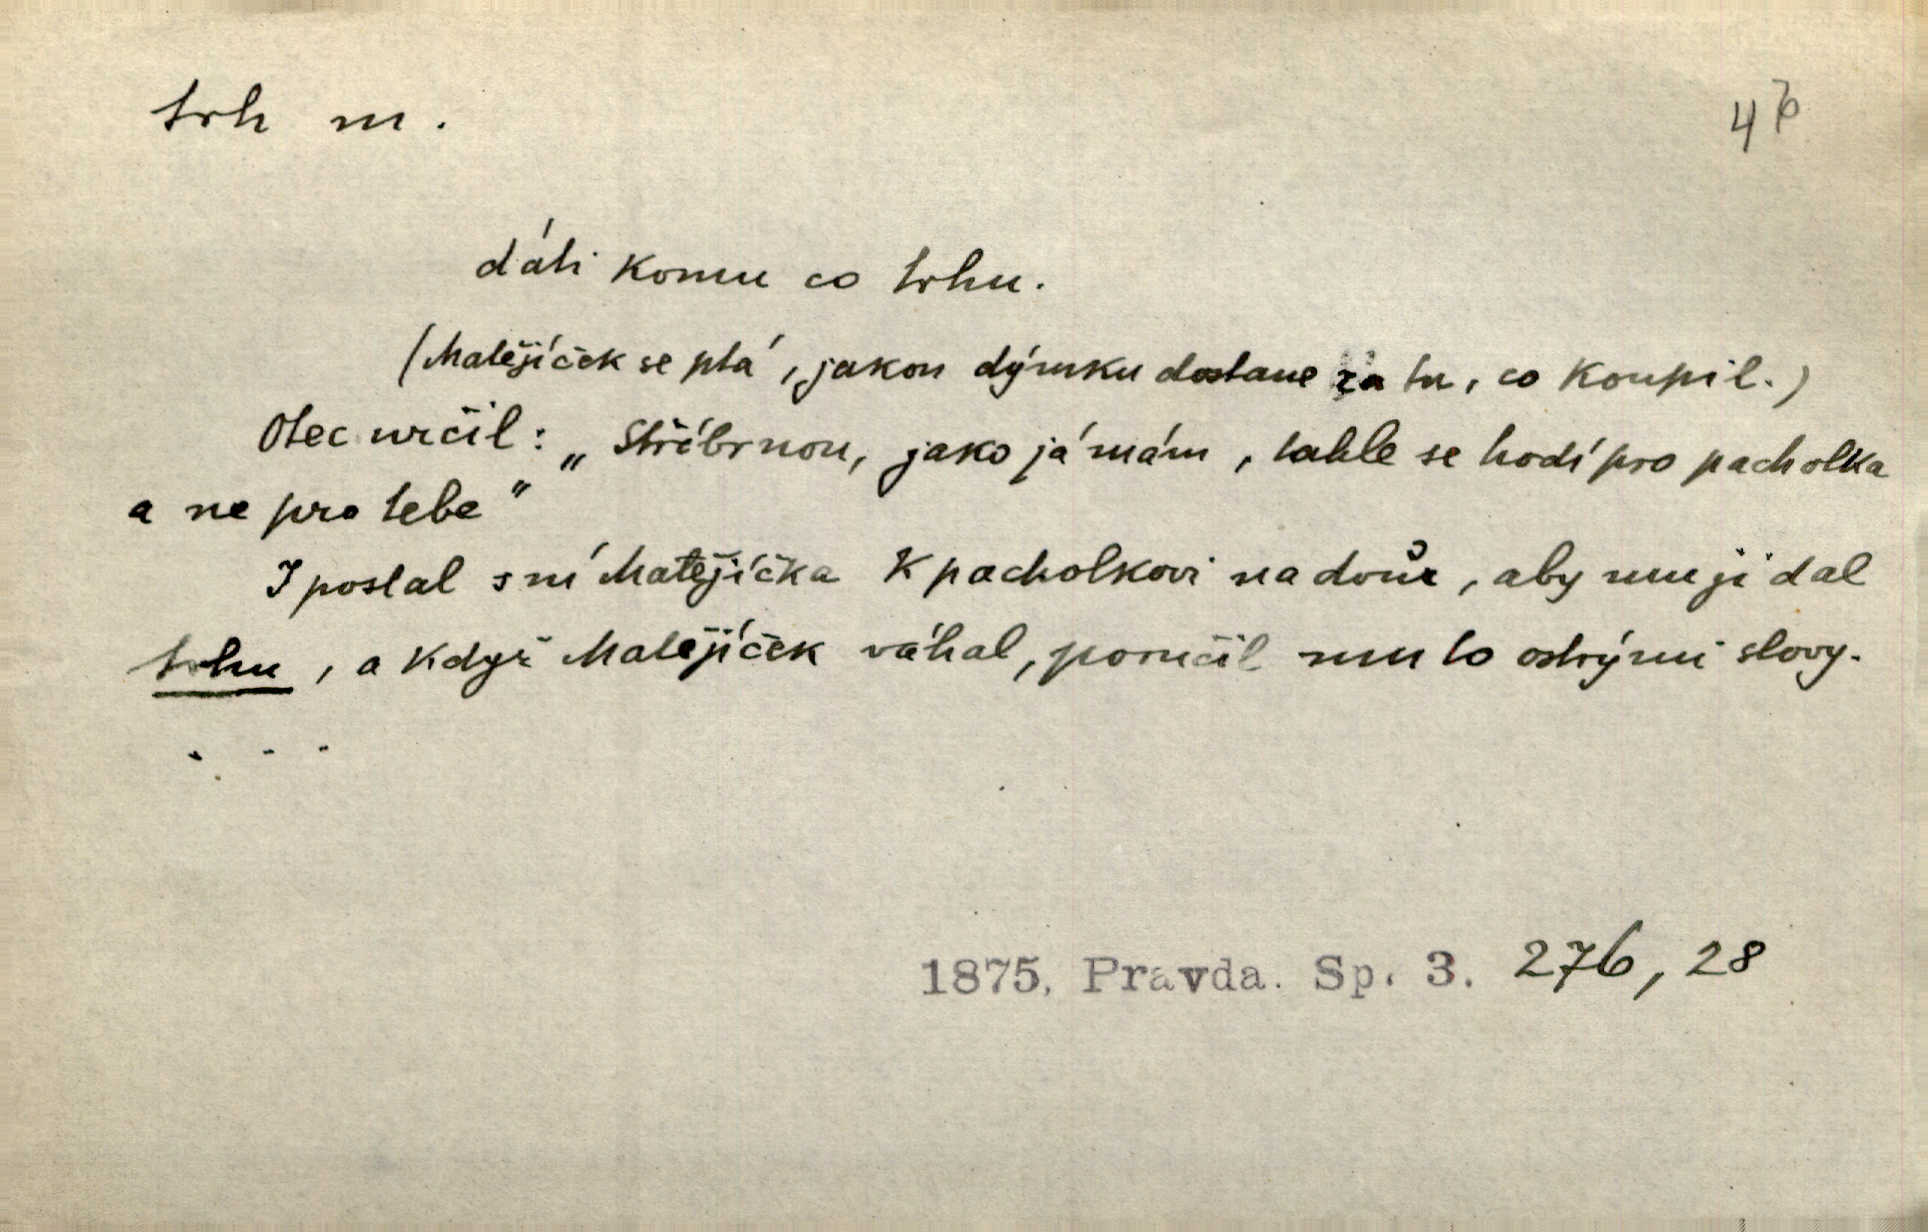 trh m.
4 76
dáti komu co trhu.
(Matějíček se ptá, jakou dýmku dostane za tu, co koupil.)
Otec určil: „Stříbrnou, jako já mám, tahle se hodí pro pacholka
a ne pro tebe"
I poslal s ní Matějíčka k pacholkovi na dvůr, aby mu ji dal
trhu, a když Matějíček váhal, poručil mu to ostrými slovy.
. . .
1875. Pravda. Sp. 3. 276, 28